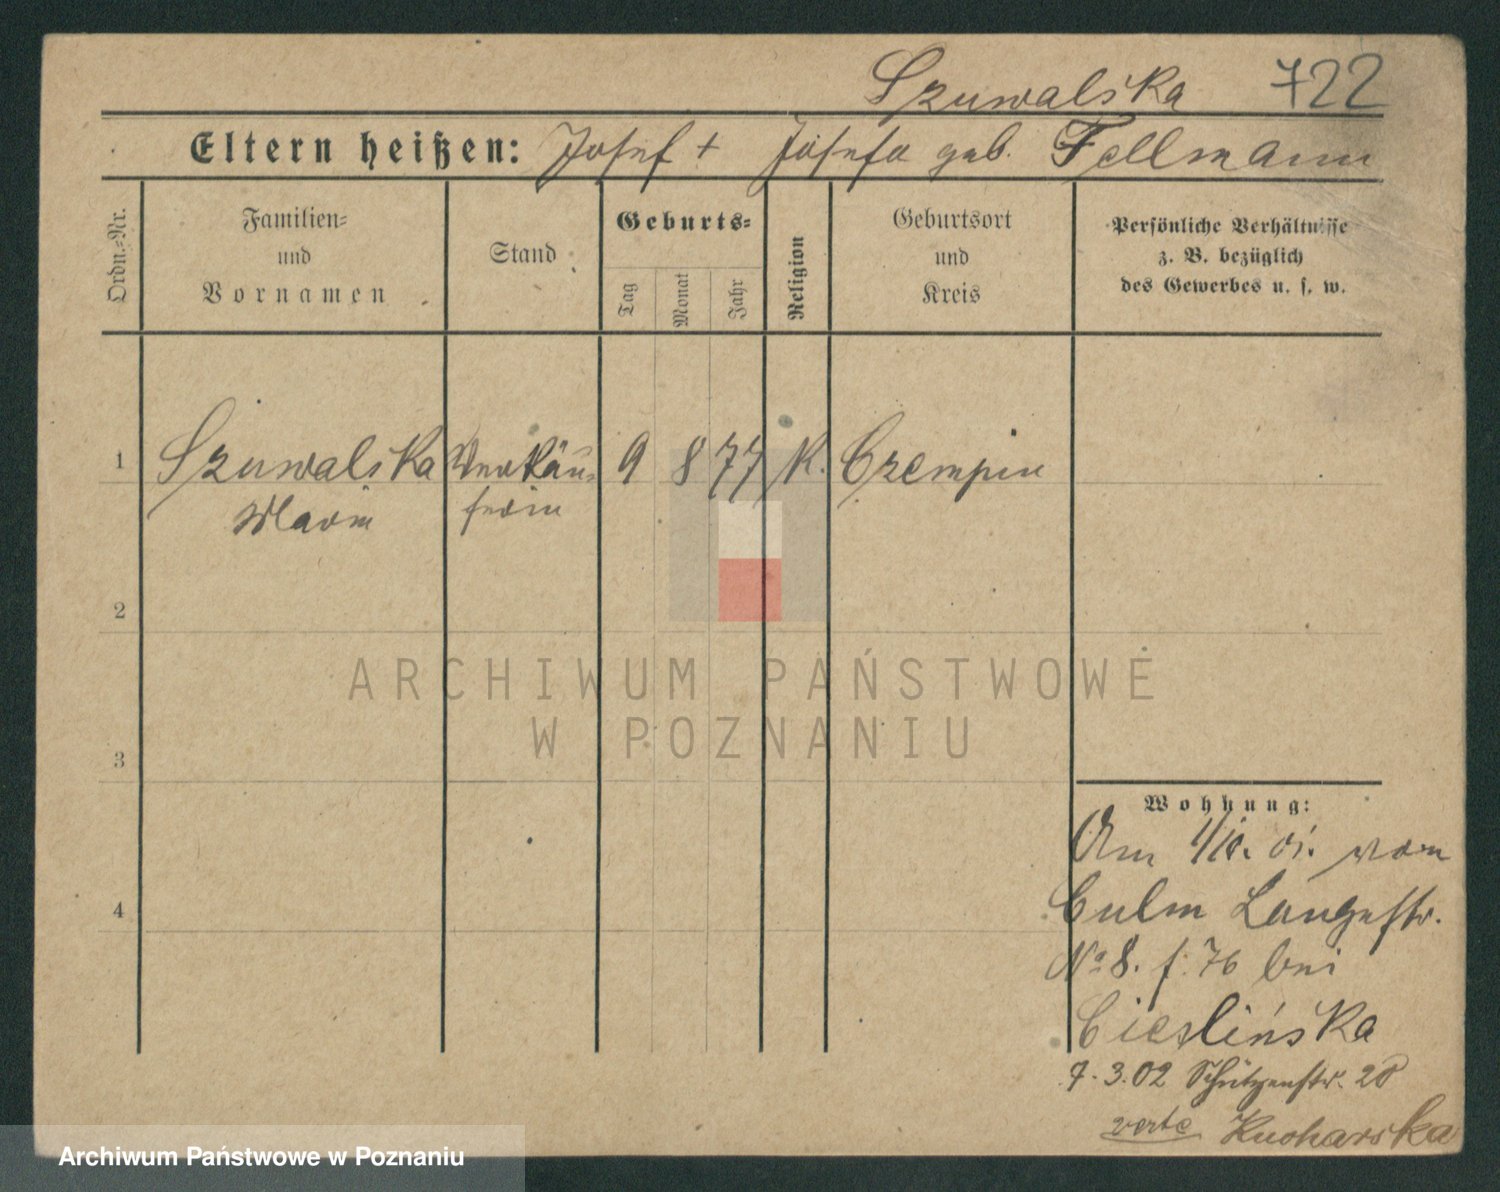 Szuwalska 722
Eltern heißen: Josef + Josefa geb. Fellmann
Ordn.-Nr.
Familien-
und
Vornamen
Stand
Geburts-
Tag
Monat
Jahr
Religion
Geburtsort
und
Kreis
Persönliche Verhältnisse
z. B. bezüglich
des Gewerbes u. s. w.
1 Szuwalska Verkäu- 9 8 77 K. Czempin
Marie ferin
2
ARCHIWUM PAŃSTWOWE
W POZNANIU
3
Wohnung:
Am 1/10. 01. von
4 Culm Langestr.
No 8. f. 76 bei
Cieslińska
7. 3. 02 Schützenstr. 20
verte Kucharska
Archiwum Państwowe w Poznaniu